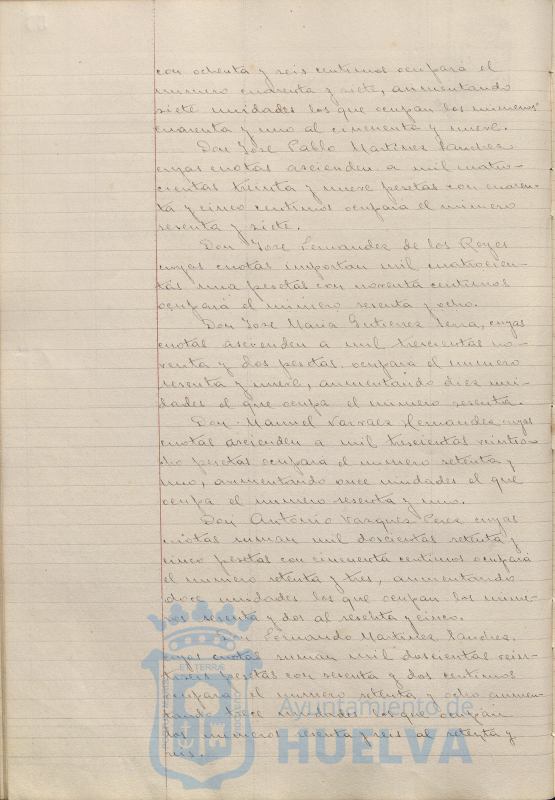 con ochenta y seis centimos ocupará el
numero cuarenta y siete, aumentando
siete unidades los que ocupan los numeros
cuarenta y uno al cincuenta y nueve.
Don José Pablo Martinez Sanchez
cuyas cuotas ascienden a mil cuatro-
cientas treinta y nueve pesetas con cuaren-
ta y cinco centimos ocupará el numero
sesenta y siete.
Don José Fernandez de los Reyes
cuyas cuotas importan mil cuatrocien-
tas una pesetas con noventa centimos
ocupará el numero sesenta y ocho.
Don José Maria Gutierrez Serra, cuyas
cuotas ascienden a mil trescientas no-
venta y dos pesetas, ocupara el numero
sesenta y nueve, aumentando diez uni-
dades el que ocupa el numero sesenta.
Don Manuel Narvaez Hernandez, cuyas
cuotas ascienden a mil trescientas veintio-
cho pesetas ocupará el numero setenta y
uno, aumentando once unidades el que
ocupa el numero sesenta y uno.
Don Antonio Vazquez Perez cuyas
cuotas suman mil doscientas setenta y
cinco pesetas con cincuenta centimos ocupará
el numero setenta y tres, aumentando
doce unidades los que ocupan los nume-
ros sesenta y dos al sesenta y cinco.
Don Fernando Martinez Sanchez,
cuyas cuotas suman mil doscientas vein-
tiseis pesetas con sesenta y dos centimos
ocupará el numero setenta y ocho aumen-
tando trece unidades los que ocupan
los numeros sesenta y seis al setenta y
seis.
Ayuntamiento de
HUELVA